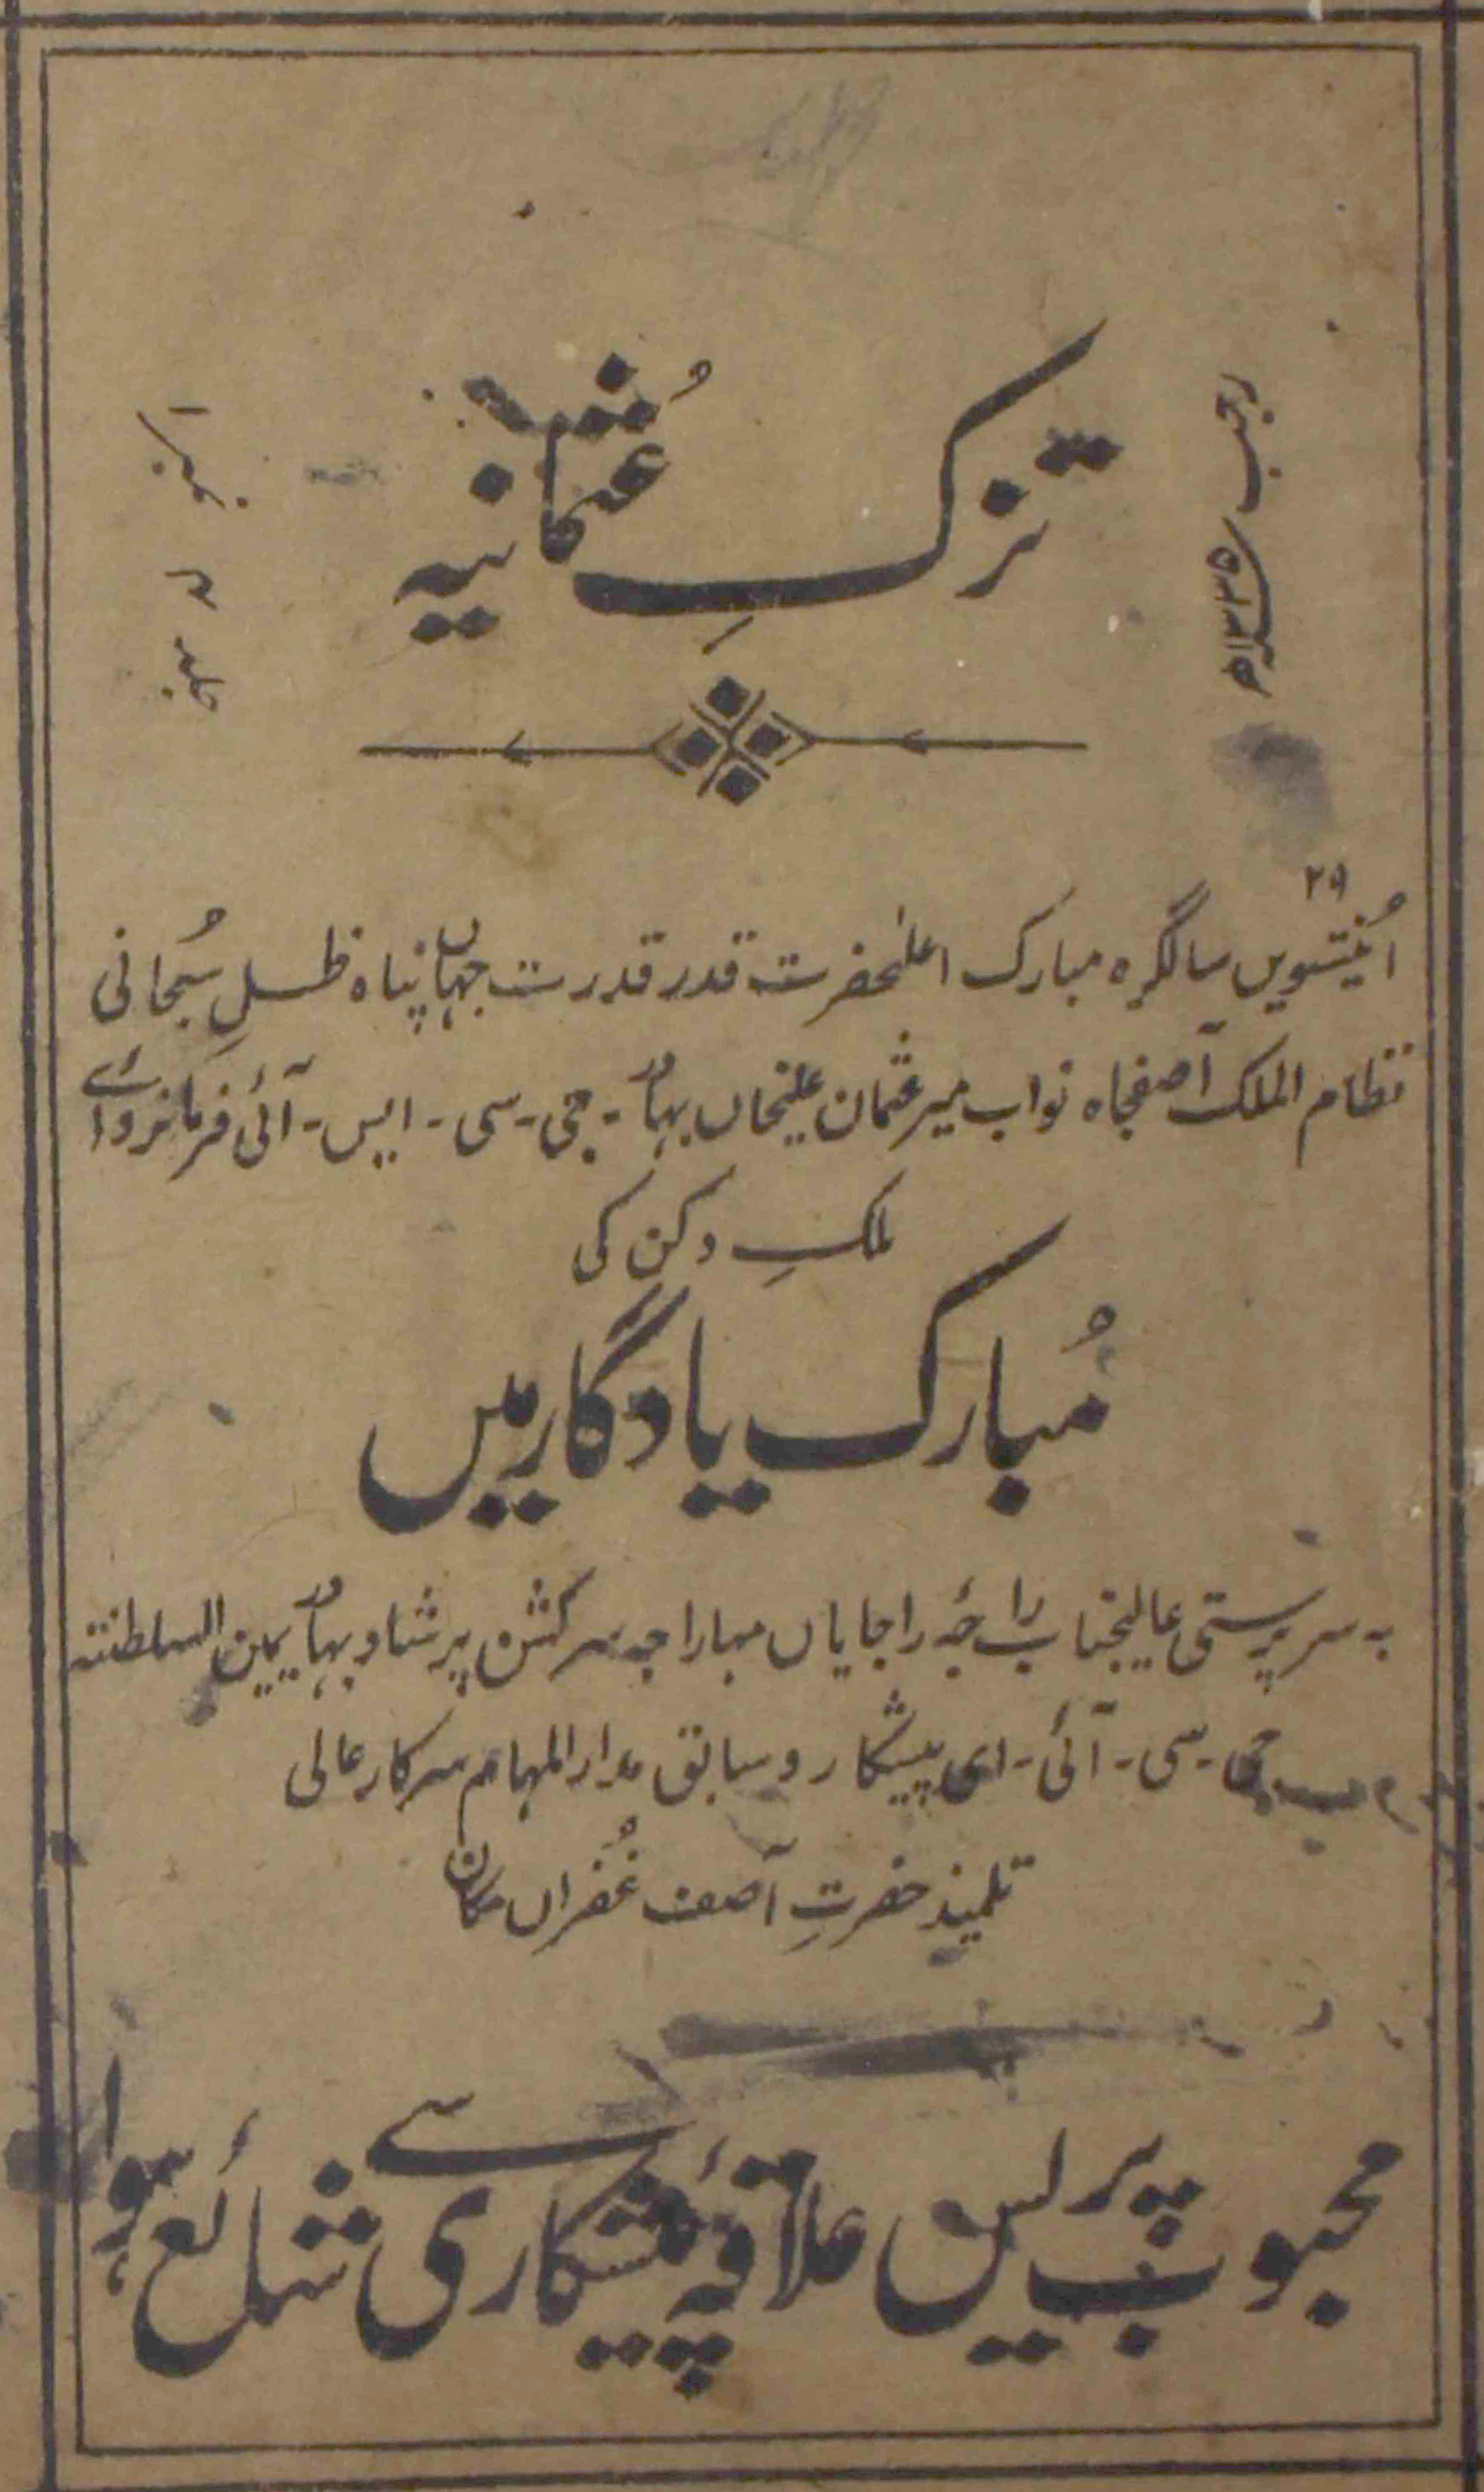 تزکِ عُثمانیہ
رجب ۱۳۳۵ھ
جلد ۴ نمبر ۱
۲۹
اُنتیسویں سالگرہ مبارک اعلیٰحضرت قدر قدرت جہاں پناہ ظلِ سُبحانی
نظام الملک آصفجاہ نواب میر عثمان علیخاں بہادُر - جی - سی - ایس - آئی فرمانروائے
ملکِ دکن کی
مُبارک یادگار میں
بہ سرپرستی عالیجناب راجۂ راجایاں مہاراجہ سرکشن پرشاد بہادُر یمین السلطنتہ
جی - سی - آئی - ای پیشکار و سابق مدار المہام سرکار عالی
تلمیذ حضرتِ آصف غُفراں مکان
محبوب پریس علاقۂ پیشکاری سے شائع ہوا